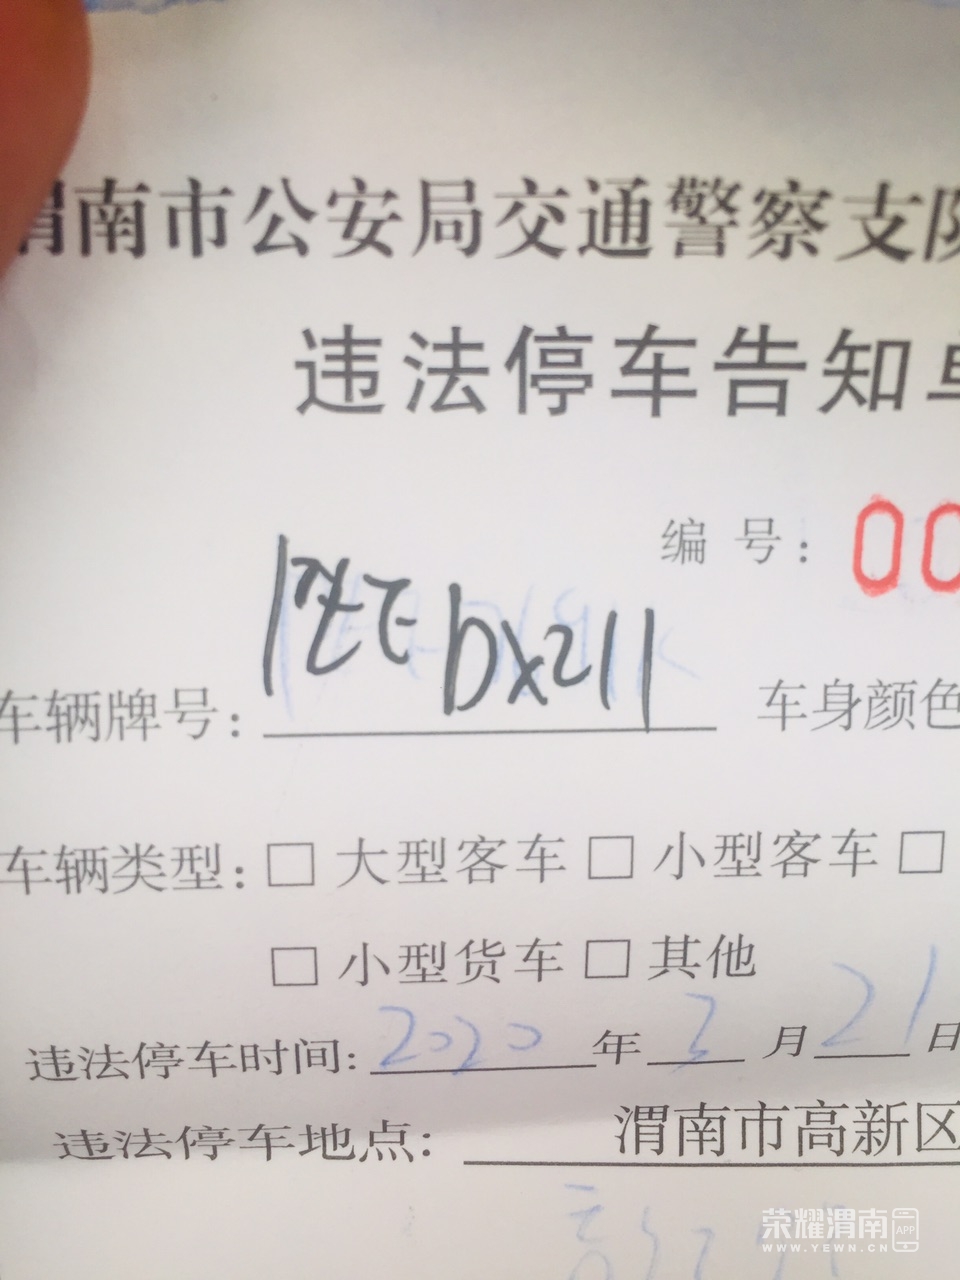 渭南市公安局交通警察支队
违法停车告知单
编号: 00
车辆牌号: 陕EDX211 车身颜色
车辆类型: □ 大型客车 □ 小型客车 □
□ 小型货车 □ 其他
违法停车时间: 2020 年 3 月 21 日
违法停车地点: 渭南市高新区
荣耀渭南 APP
WWW.YEWN.CN